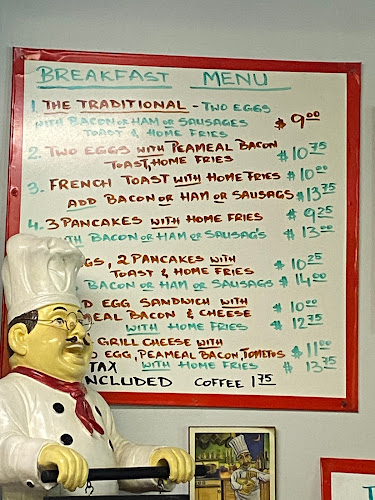 BREAKFAST MENU
1. THE TRADITIONAL - TWO EGGS
WITH BACON OR HAM OR SAUSAGES $9.00
TOAST & HOME FRIES
2. TWO EGGS WITH PEAMEAL BACON $10.75
TOAST, HOME FRIES
3. FRENCH TOAST WITH HOME FRIES $10.00
ADD BACON OR HAM OR SAUSAGS $13.75
4. 3 PANCAKES WITH HOME FRIES $9.25
TH BACON OR HAM OR SAUSAG'S $13.00
GS, 2 PANCAKES WITH $10.25
TOAST & HOME FRIES
BACON OR HAM OR SAUSAGES $14.00
D EGG SANDWICH WITH $10.00
MEAL BACON & CHEESE
WITH HOME FRIES $12.75
GRILL CHEESE WITH $11.00
D EGG, PEAMEAL BACON, TOMETOS
TAX WITH HOME FRIES $13.75
INCLUDED COFFEE 1.75